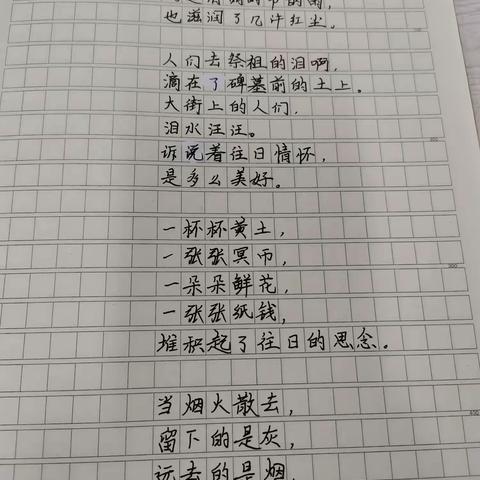 时节的雨,
也滋润了几许红尘。
人们去祭祖的泪啊,
滴在了碑墓前的土上。
大街上的人们,
泪水汪汪。
诉说着往日情怀,
是多么美好。
一杯杯黄土,
一张张冥币,
一朵朵鲜花,
一张张纸钱,
堆积起了往日的思念。
当烟火散去,
留下的是灰,
远去的是烟,